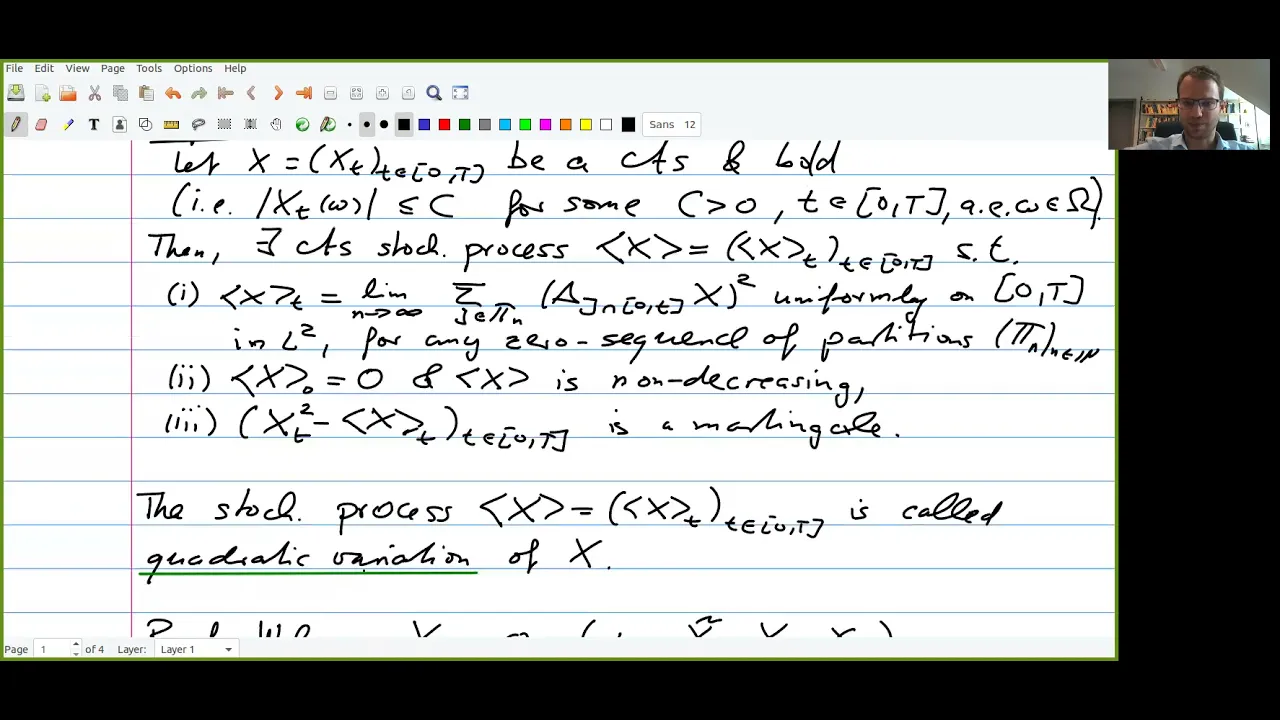 File Edit View Page Tools Options Help
Sans 12
Let X = (X_t)_{t∈[0,T]} be a cts & bdd
(i.e. |X_t(ω)| ≤ C for some C>0, t∈[0,T], a.e. ω∈Ω).
Then, ∃ cts stoch. process <X> = (<X>_t)_{t∈[0,T]} s.t.
(i) <X>_t = lim_{n→∞} Σ_{J∈Π_n} (Δ_{J∩[0,t]} X)² uniformly on [0,T]
in L², for any zero-sequence of partitions (Π_n)_{n∈ℕ}
(ii) <X>_0 = 0 & <X> is non-decreasing,
(iii) (X_t² - <X>_t)_{t∈[0,T]} is a martingale.
The stoch. process <X> = (<X>_t)_{t∈[0,T]} is called
quadratic variation of X.
Page 1 of 4 Layer: Layer 1